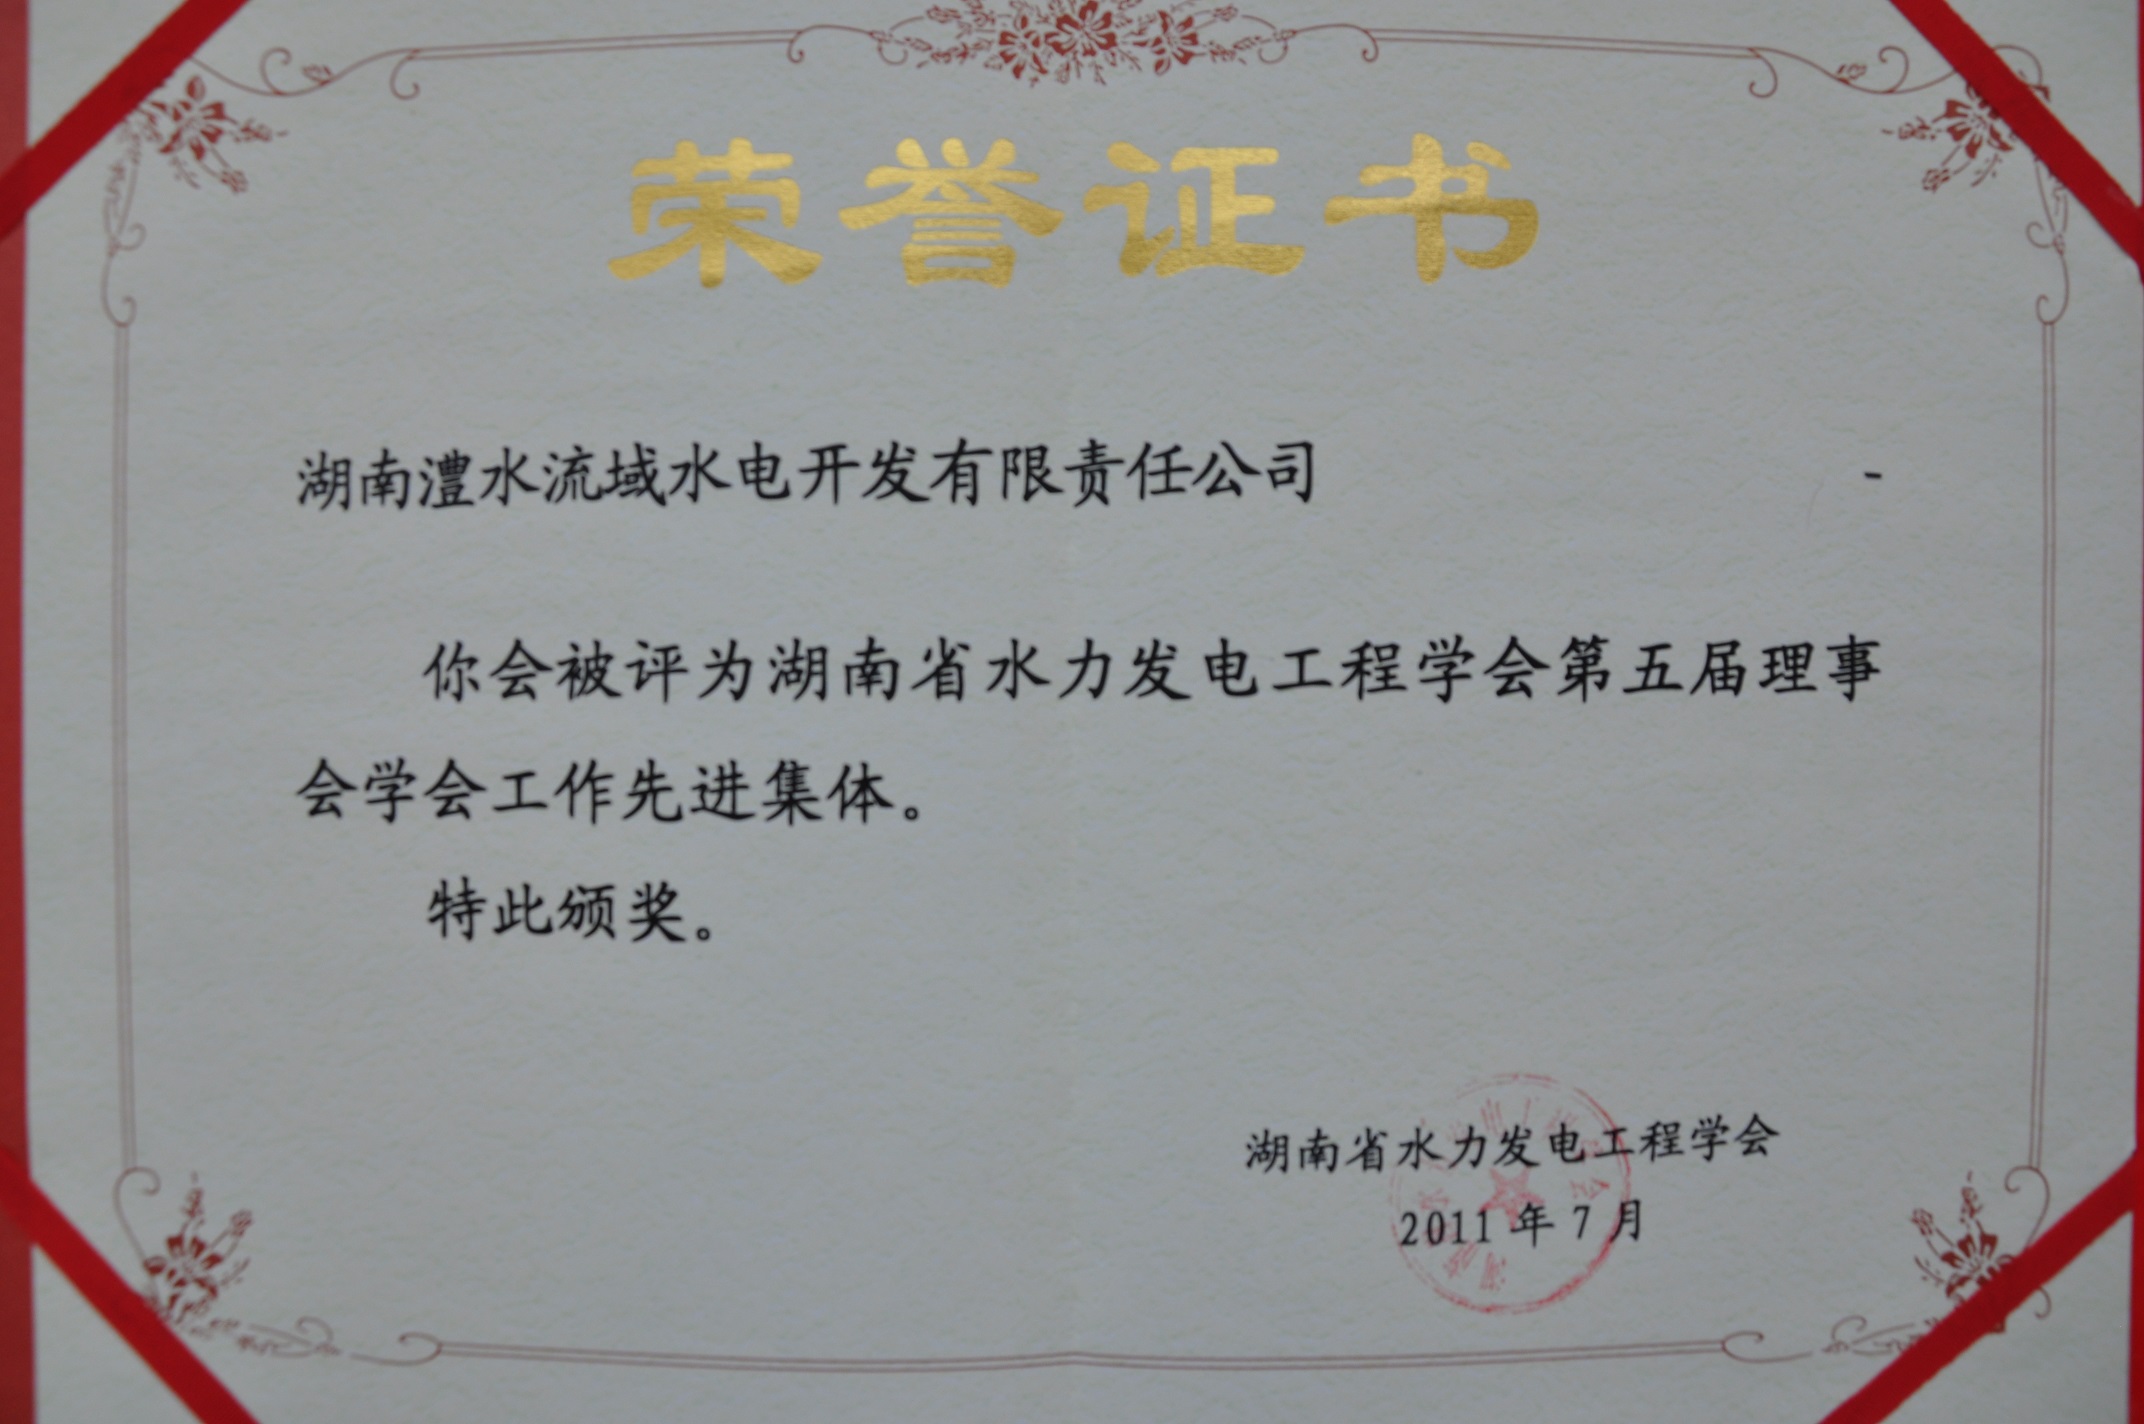 荣誉证书
湖南澧水流域水电开发有限责任公司 -
你会被评为湖南省水力发电工程学会第五届理事
会学会工作先进集体。
特此颁奖。
湖南省水力发电工程学会
2011 年 7 月